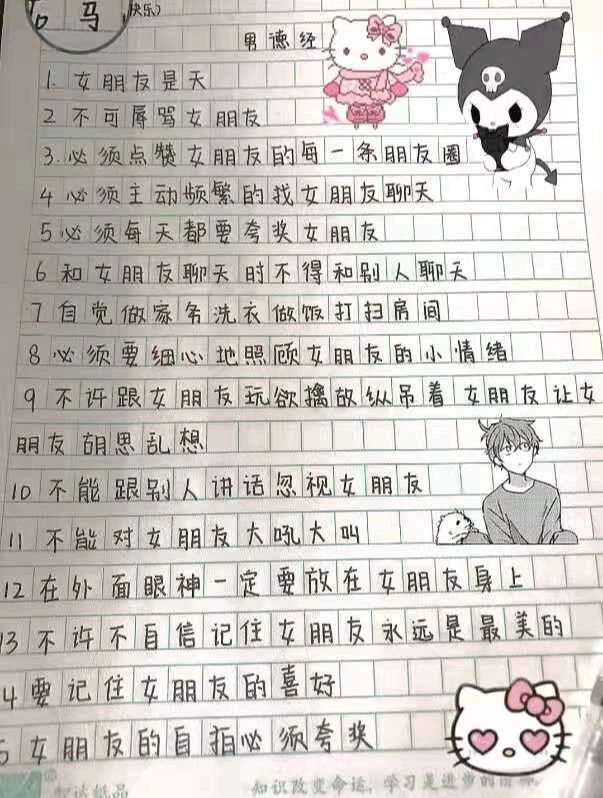 马
快乐)
男德经
1. 女朋友是天
2 不可辱骂女朋友
3.必须点赞女朋友的每一条朋友圈
4 必须主动频繁的找女朋友聊天
5 必须每天都要夸奖女朋友
6 和女朋友聊天时不得和别人聊天
7 自觉做家务洗衣做饭打扫房间
8 必须要细心地照顾女朋友的小情绪
9 不许跟女朋友玩欲擒故纵吊着女朋友让女
朋友胡思乱想
10 不能跟别人讲话忽视女朋友
11 不能对女朋友大吼大叫
12 在外面眼神一定要放在女朋友身上
13 不许不自信记住女朋友永远是最美的
4 要记住女朋友的喜好
5 女朋友的自拍必须夸奖
知识改变命运，学习是进步的